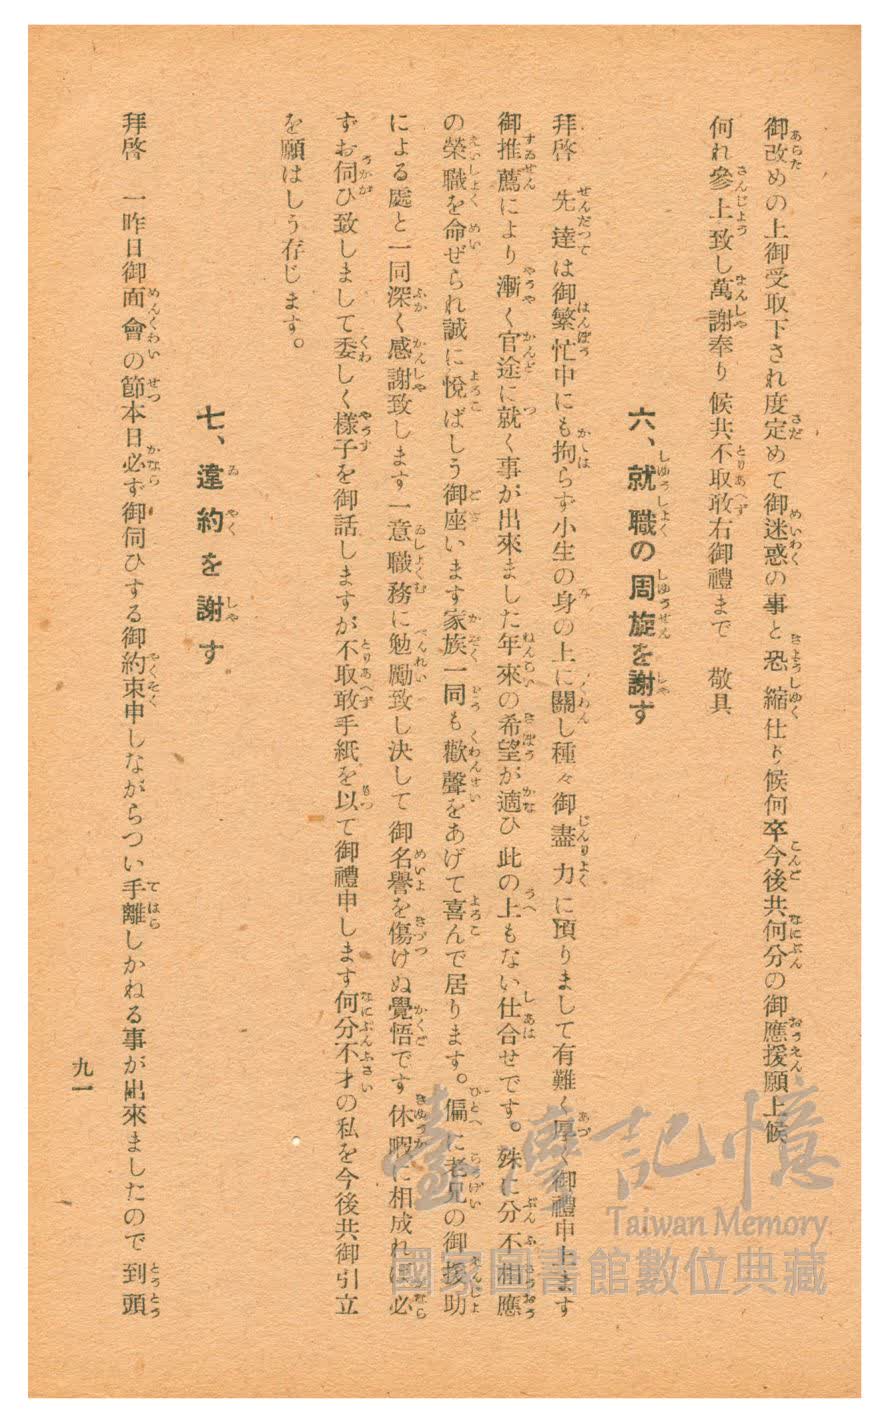 御改めの上御受取下され度定めて御迷惑の事と恐縮仕り候何卒今後共何分の御應援願上候
何れ參上致し萬謝奉り候共不取敢右御禮まで　敬具
六、就職の周旋を謝す
拜啓　先達ては御繁忙中にも拘らず小生の身の上に關し種々御盡力に預りまして有難く厚く御禮申上ます
御推薦により漸く官途に就く事が出來ました年來の希望が適ひ此の上もない仕合せです。殊に分不相應
の榮職を命ぜられ誠に悅ばしう御座います家族一同も歡聲をあげて喜んで居ります。偏に老兄の御援助
による處と一同深く感謝致します一意職務に勉勵致し決して御名譽を傷けぬ覺悟です休暇に相成れば必
ずお伺ひ致しまして委しく樣子を御話しますが不取敢手紙を以て御禮申します何分不才の私を今後共御引立
を願はしう存じます。
七、違約を謝す
拜啓　一昨日御面會の節本日必ず御伺ひする御約束申しながらつい手離しかねる事が出來ましたので到頭
九一
臺灣記憶
Taiwan Memory
國家圖書館數位典藏